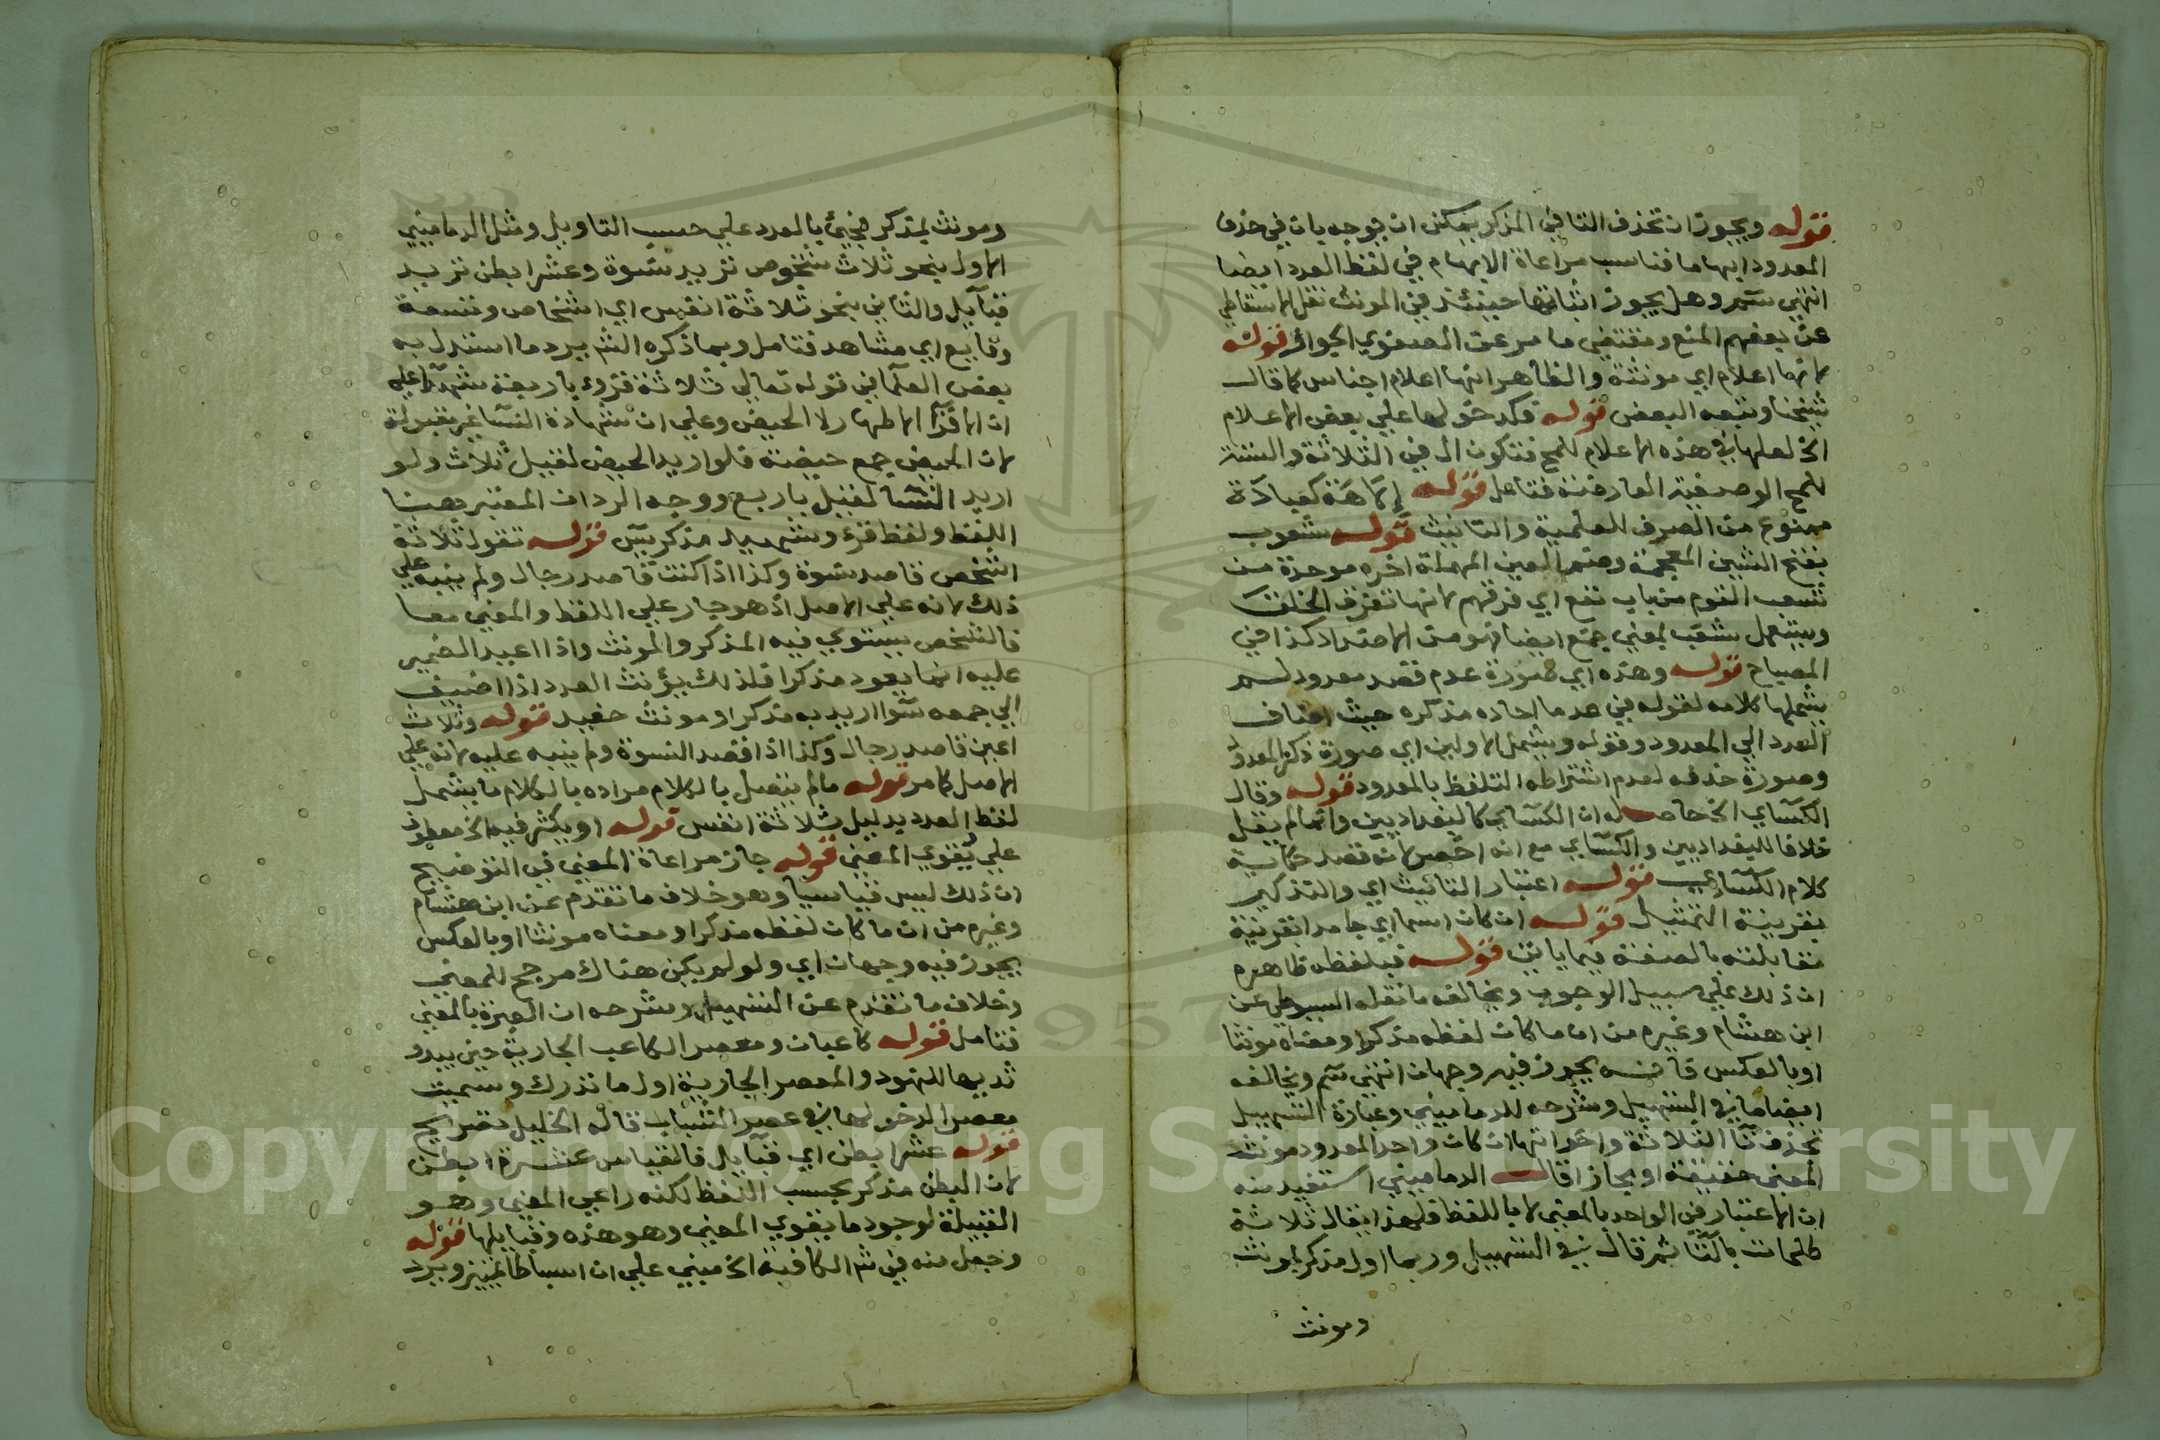 قوله ويجوز ان تحذف التا في المذكر يمكن ان يوجه بان في حذف
المعدود ابهاما فناسب مراعاة الابهام في لفظ العدد ايضا
انتهى سم وهل يجوز اثباتها حينئذ في المونث نقل الاسقاطي
عن بعضهم المنع ومقتضى ما مر عن الصفوي الجواز قوله
لانها اعلام اي مونثة والظاهر انها اعلام اجناس كما قال
شيخنا وتبعه البعض قوله فكدخولها على بعض الاعلام
الخ لعلها في هذه الاعلام للمح فتكون ال في الثلاثة والستة
للمح الوصفية العارضة فتامل قوله إلاهة كعبادة
ممنوع من الصرف للعلمية والتانيث قوله شعوب
بفتح الشين المعجمة وضم العين المهملة اخره موحدة من
شعب القوم من باب نفع اي فرقهم لانها تفرق الخلق
ويستعمل شعب بمعنى جمع ايضا فهو من الاضداد كذا في
المصباح قوله وهذه اي صورة عدم قصد معدود لم
يشملها كلامه لقوله في عد ما احاده مذكره حيث اضاف
العدد الى المعدود وقوله ويشمل الاولين اي صورة ذكر المعدود
وصورة حذفه لعدم اشتراطه التلفظ بالمعدود قوله وقال
الكسائي الخ حاصله ان الكسائي كالبغداديين وانما لم يقل
خلافا للبغداديين والكسائي مع انه اخصر لانه قصد حكاية
كلام الكسائي قوله اعتبار التانيث اي والتذكير
بقرينة التمثيل قوله ان كان اسما اي جامدا بقرينة
مقابلته بالصفة فيما ياتي قوله فبلفظه ظاهره
ان ذلك على سبيل الوجوب ويخالفه ما نقله السيوطي عن
ابن هشام وغيره من ان ما كان لفظه مذكرا ومعناه مونثا
او بالعكس فانه يجوز فيه وجهان انتهى سم ويخالفه
ايضا ما في التسهيل وشرحه للدماميني وعبارة التسهيل
تحذف تا الثلاثة واخواتها ان كان واحد المعدود مونث
المعنى حقيقة او مجازا قال الدماميني استفيد منه
ان الاعتبار في الواحد بالمعنى لا باللفظ فلهذا يقال ثلاثة
طلحات بالتا ثم قال في التسهيل وربما اول مذكر بمونث
ومونث
ومونث بمذكر فيجئ بالعدد على حسب التاويل ومثل الدماميني
الاول بنحو ثلاث شخوص تريد نسوة وعشر ابطن تريد
قبايل والثاني بنحو ثلاثة انفس اي اشخاص وتسعة
وقايع اي مشاهد فتامل وبما ذكره الش يرد ما استدل به
بعض العلما في قوله تعالى ثلاثة قروء باربعة شهدا على
ان الاقرا الاطهار لا الحيض وعلى ان شهادة النسا غير مقبولة
لان الحيض جمع حيضة فلو اريد الحيض لقيل ثلاث ولو
اريد النسا لقيل باربع ووجه الرد ان المعتبر هنا
اللفظ ولفظ قرء وشهيد مذكرين قوله تقول ثلاثة
اشخص قاصد نسوة وكذا اذا كنت قاصد رجال ولم ينبه على
ذلك لانه على الاصل اذ هو جار على اللفظ والمعنى معا
فالشخص يستوي فيه المذكر والمونث واذا اعيد الضمير
عليه انما يعود مذكرا فلذلك يؤنث العدد اذا اضيف
الى جمعه سوا اريد به مذكر او مونث حفيد قوله وثلاث
اعين قاصد رجال وكذا اذا قصد النسوة ولم ينبه عليه لانه على
الاصل كما مر قوله ما لم يتصل بالكلام مراده بالكلام ما يشمل
لفظ العدد بدليل ثلاثة انفس قوله او يكثر فيه الخ معطوف
على يقوي المعنى قوله جاز مراعاة المعنى في التوضيح
ان ذلك ليس قياسيا وهو خلاف ما تقدم عن ابن هشام
وغيره من ان ما كان لفظه مذكرا ومعناه مونثا او بالعكس
يجوز فيه وجهان اي ولو لم يكن هناك مرجح للمعنى
وخلاف ما تقدم عن التسهيل وشرحه ان العبرة بالمعنى
فتامل قوله كاعبان ومعصر الكاعب الجارية حين يبدو
ثديها للنهود والمعصر الجارية اول ما تدرك وسميت
معصرا لدخولها في عصر الشباب قاله الخليل تصريح
قوله عشر ابطن اي قبايل فالقياس عشرة ابطن
لان البطن مذكر بحسب اللفظ لكنه راعى المعنى وهو
القبيلة لوجود ما يقوي المعنى وهو هذه وقبايلها قوله
وجعل منه في ش الكافية الخ مبني على ان اسباطا تمييز ويرد